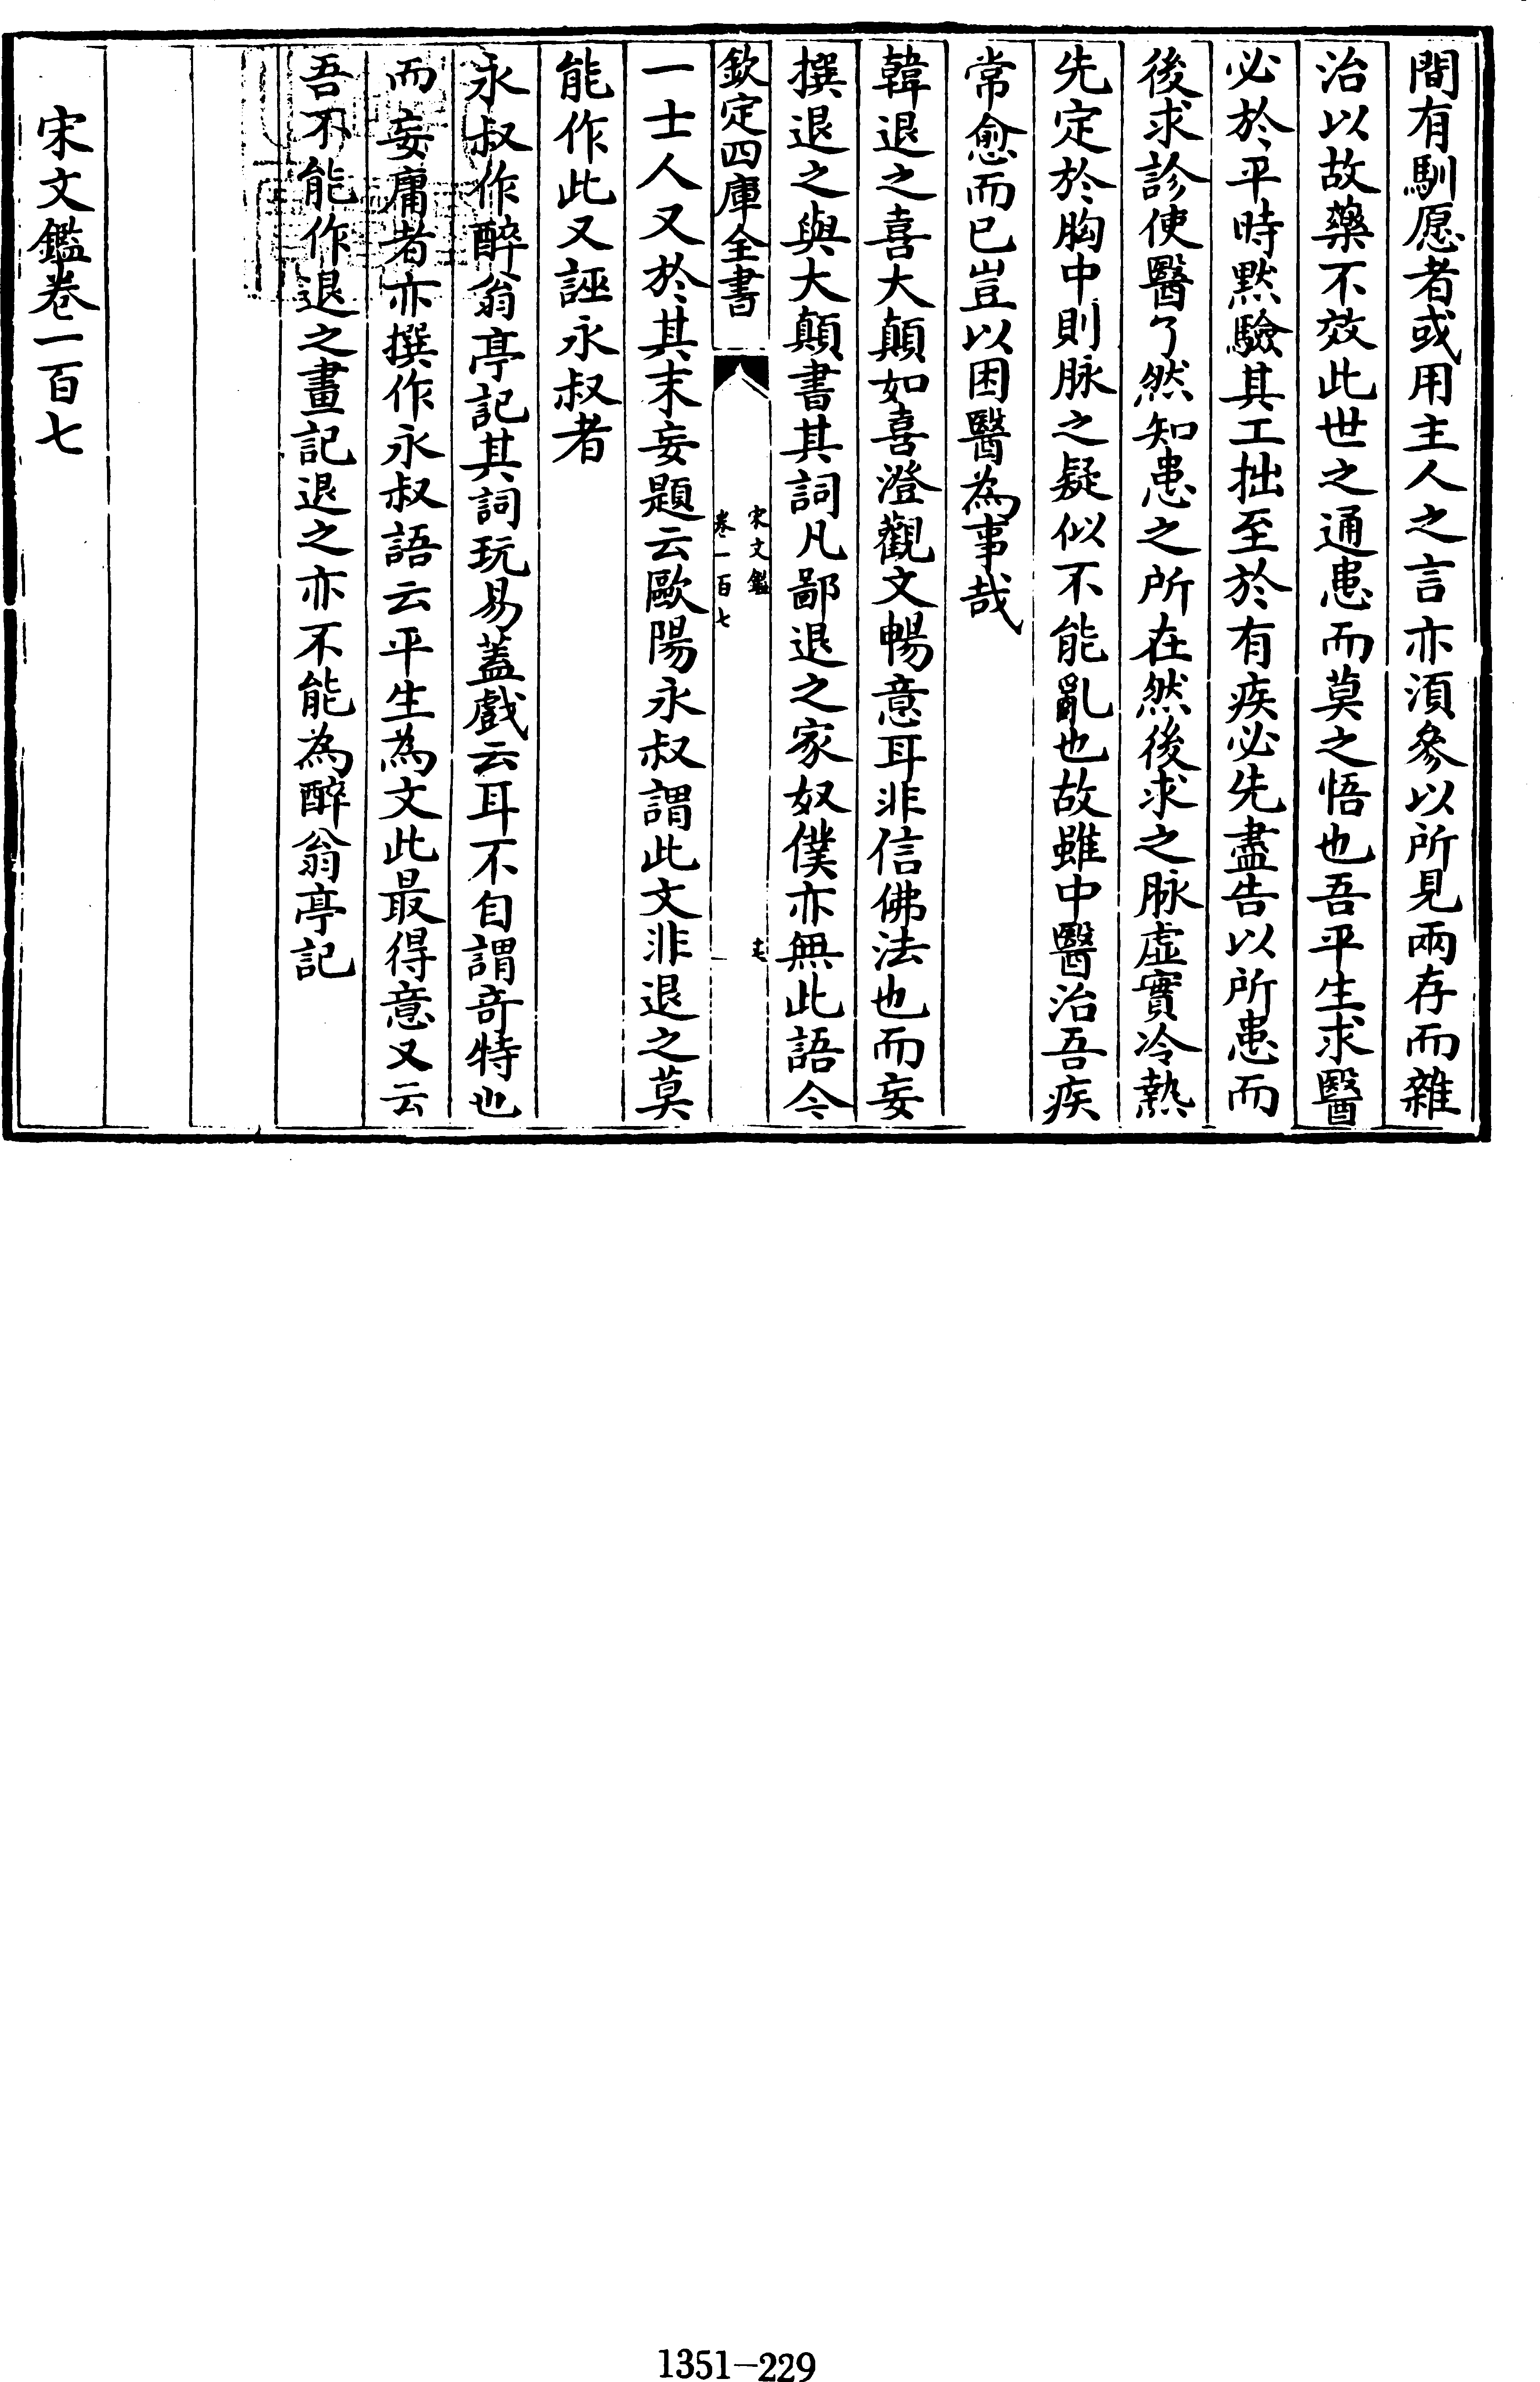 間有馴愿者或用主人之言亦湏參以所見兩存而雜
治以故藥不效此世之通患而莫之悟也吾平生求醫
必於平時黙驗其工拙至於有疾必先盡告以所患而
後求診使醫了然知患之所在然後求之脉虛實冷熱
先定於胸中則脉之疑似不能亂也故雖中醫治吾疾
常愈而已豈以困醫為事哉
韓退之喜大顛如喜澄觀文暢意耳非信佛法也而妄
撰退之與大顛書其詞凡鄙退之家奴僕亦無此語今
欽定四庫全書
宋文鑑
卷一百七
一士人又於其末妄題云歐陽永叔謂此文非退之莫
能作此又誣永叔者
永叔作醉翁亭記其詞玩易葢戲云耳不自謂竒特也
而妄庸者亦撰作永叔語云平生為文此最得意又云
吾不能作退之畫記退之亦不能為醉翁亭記
宋文鑑卷一百七
1351-229